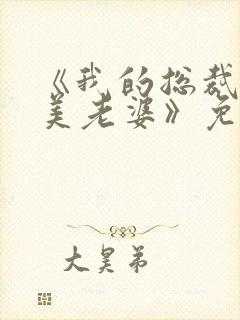 《我的总裁
美老婆》免
大昊弟